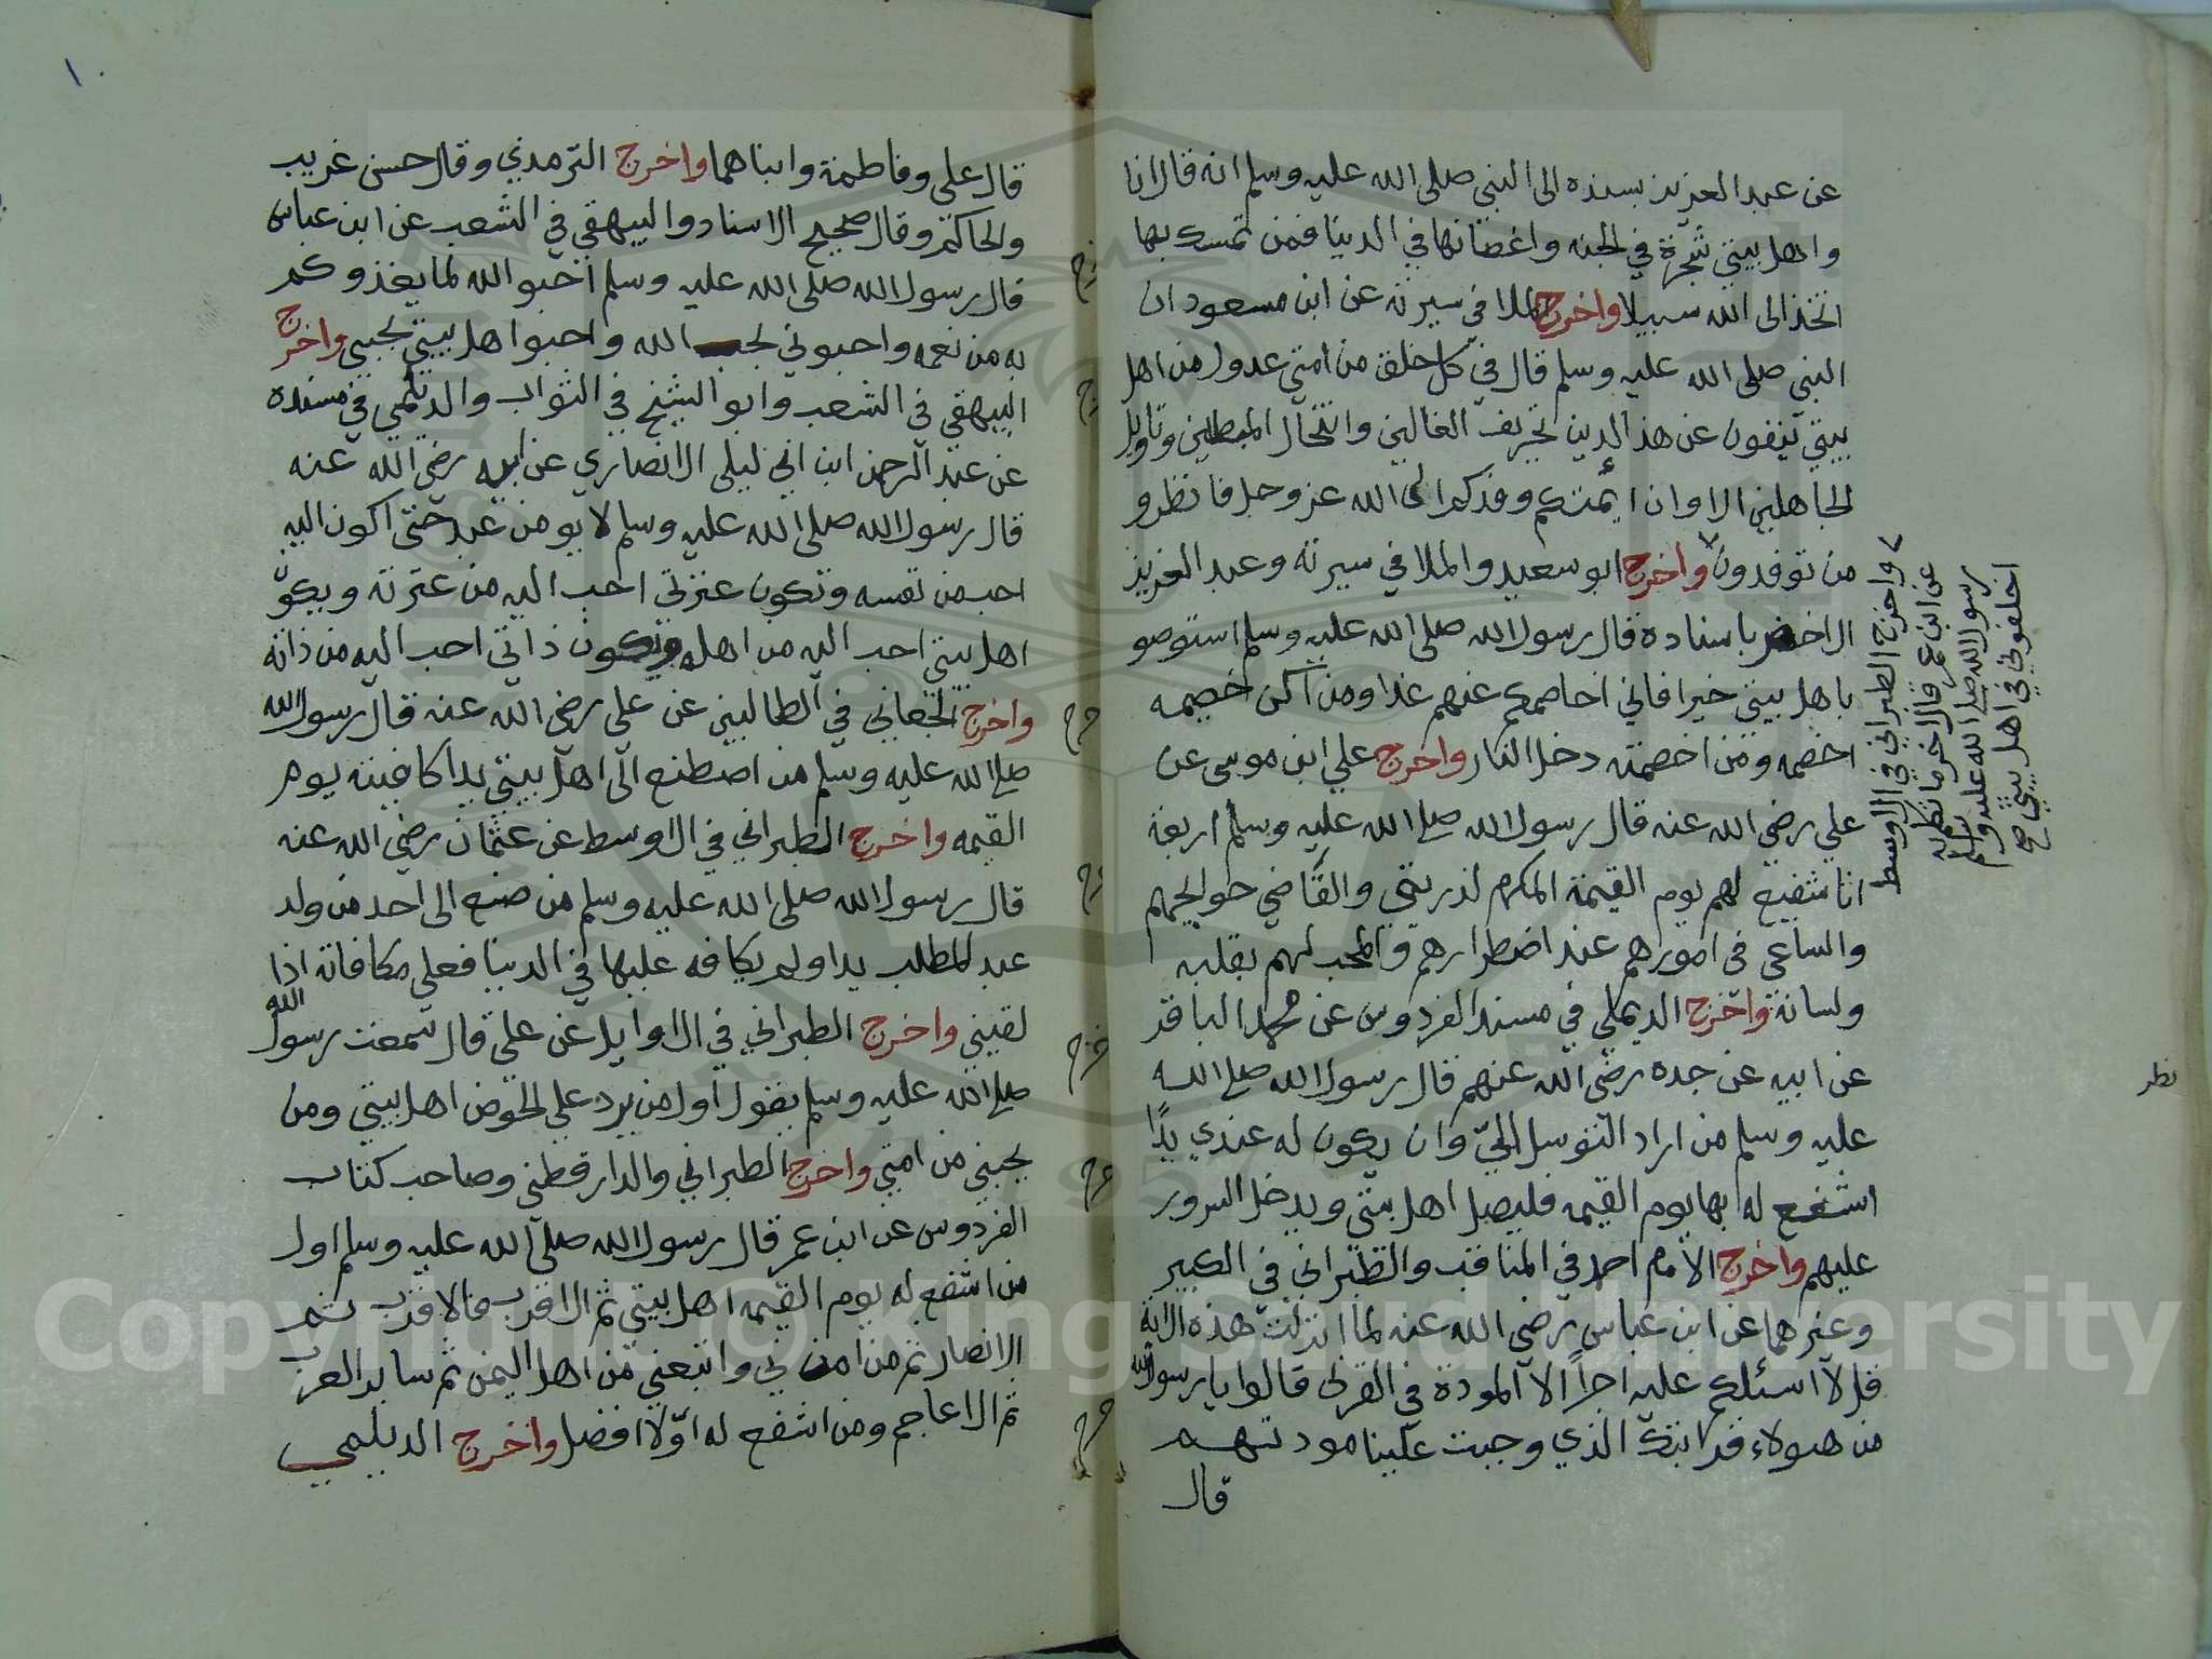 عن عبد العزيز بسنده الى النبي صلى الله عليه وسلم انه قال انا
واهل بيتي شجرة في الجنه واغصانها في الدينا فمن تمسك بها
اتخذ الى الله سبيلا واخرج الملا في سيرته عن ابن مسعود ان
النبي صلى الله عليه وسلم قال في كل خلق من امتي عدول من اهل
بيتي ينفون عن هذ الدين تحريف الغالين وانتحال المبطلين وتاويل
الجاهلين الا وان ايمتكم وفدكم الى الله عز وجل فانظرو
من توفدون واخرج ابو سعيد والملا في سيرته وعبد العزيز
الاخضر باسناده قال رسول الله صلى الله عليه وسلم استوصو
باهل بيتي خيرا فاني اخاصمكم عنهم غدا ومن اكن خصيمه
اخصمه ومن اخصمته دخل النار واخرج علي ابن موسى عن
علي رضي الله عنه قال رسول الله صلى الله عليه وسلم اربعة
انا شفيع لهم يوم القيمة المكرم لذريتي والقاضي حوايجهم
والساعي في امورهم عند اضطرارهم والمحب لهم بقلبه
ولسانه واخرج الديملي في مسند الفردوس عن محمد الباقر
عن ابيه عن جده رضي الله عنهم قال رسول الله صلى الله
عليه وسلم من اراد التوسل اليّ وان يكون له عندي يدًا
اشفع له بها يوم القيمه فليصل اهل بيتي ويدخل السرور
عليهم واخرج الامام احمد في المناقب والطبراني في الكبير
وغيرهما عن ابن عباس رضي الله عنه لما انزلت هذه الاية
قل لا اسئلكم عليه اجراً الا المودة في القربى قالوا يا رسول الله
من هولاء قرابتك الذي وجبت علينا مودتهم
قال
واخرج الطبراني في الاوسط
عن ابن عمر قال اخر ما تكلم به
رسول الله صلى الله عليه وسلم
اخلفوني في اهل بيتي صح
نظر
قال علي وفاطمة وابناهما واخرج الترمذي وقال حسن غريب
والحاكم وقال صحيح الاسناد والبيهقي في الشعب عن ابن عباس
قال رسول الله صلى الله عليه وسلم احبو الله لما يغذوكم
به من نعمه واحبوني لحب الله واحبوا اهل بيتي لحبي واخرج
البيهقي في الشعب وابو الشيخ في الثواب والديلمي في مسنده
عن عبد الرحمن ابن ابي ليلى الانصاري عن ابيه رضي الله عنه
قال رسول الله صلى الله عليه وسلم لا يومن عبد حتى اكون اليه
احب من نفسه وتكون عترتي احب اليه من عترته ويكون
اهل بيتي احب اليه من اهله وتكون ذاتي احب اليه من ذاته
واخرج الجعابي في الطالبين عن علي رضي الله عنه قال رسول الله
صلى الله عليه وسلم من اصطنع الى اهل بيتي يدا كافيته يوم
القيمه واخرج الطبراني في الاوسط عن عثمان رضي الله عنه
قال رسول الله صلى الله عليه وسلم من صنع الى احد من ولد
عبد المطلب يدا ولم يكافه عليها في الدينا فعلي مكافاته اذا
لقيني واخرج الطبراني في الاوايل عن علي قال سمعت رسول الله
صلى الله عليه وسلم يقول اول من يرد علي الحوض اهل بيتي ومن
يحبني من امتي واخرج الطبراني والدارقطني وصاحب كتاب
الفردوس عن ابن عمر قال رسول الله صلى الله عليه وسلم اول
من اشفع له يوم القيمه اهل بيتي ثم الاقرب فالاقرب ثم
الانصار ثم من امن بي واتبعني من اهل اليمن ثم ساير العرب
ثم الاعاجم ومن اشفع له اوّلا افضل واخرج الديلمي
١
Copyright © King Saud University